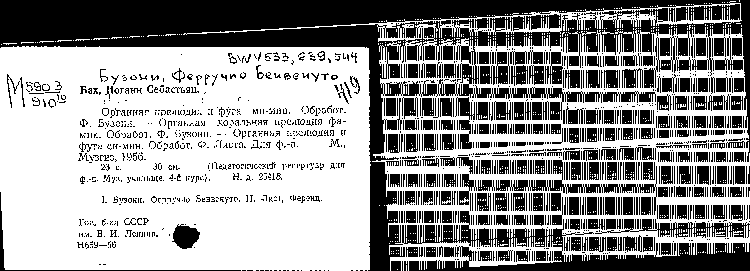 BWV 533, 639, 544
Бузони, Ферручио Бенвенуто
М 590 3
910
Бах, Иоганн Себастьян.
Органная прелюдия и фуга ми-мин. Обработ.
Ф. Бузони. — Органная хоральная прелюдия фа-
мин. Обработ. Ф. Бузони. — Органная прелюдия и
фуга си-мин. Обработ. Ф. Листа. Для ф.-п. М.,
Музгиз, 1956.
23 с. 30 см. (Педагогический репертуар для
ф.-п. Муз. училище. 4-й курс). Н. д. 25418.
I. Бузони, Ферручио Бенвенуто. II. Лист, Ференц.
Гос. б-ка СССР
им. В. И. Ленина.
Н659—56